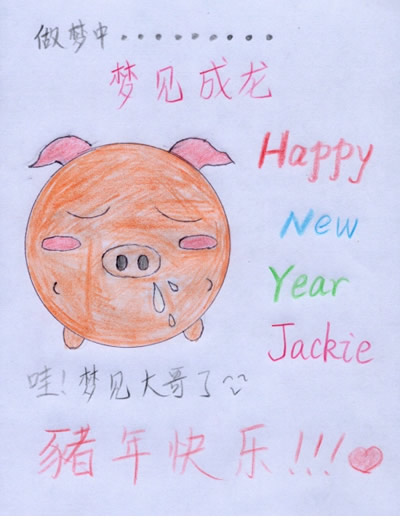 做梦中.........
梦见成龙
Happy
New
Year
Jackie
哇!梦见大哥了
豬年快乐!!!